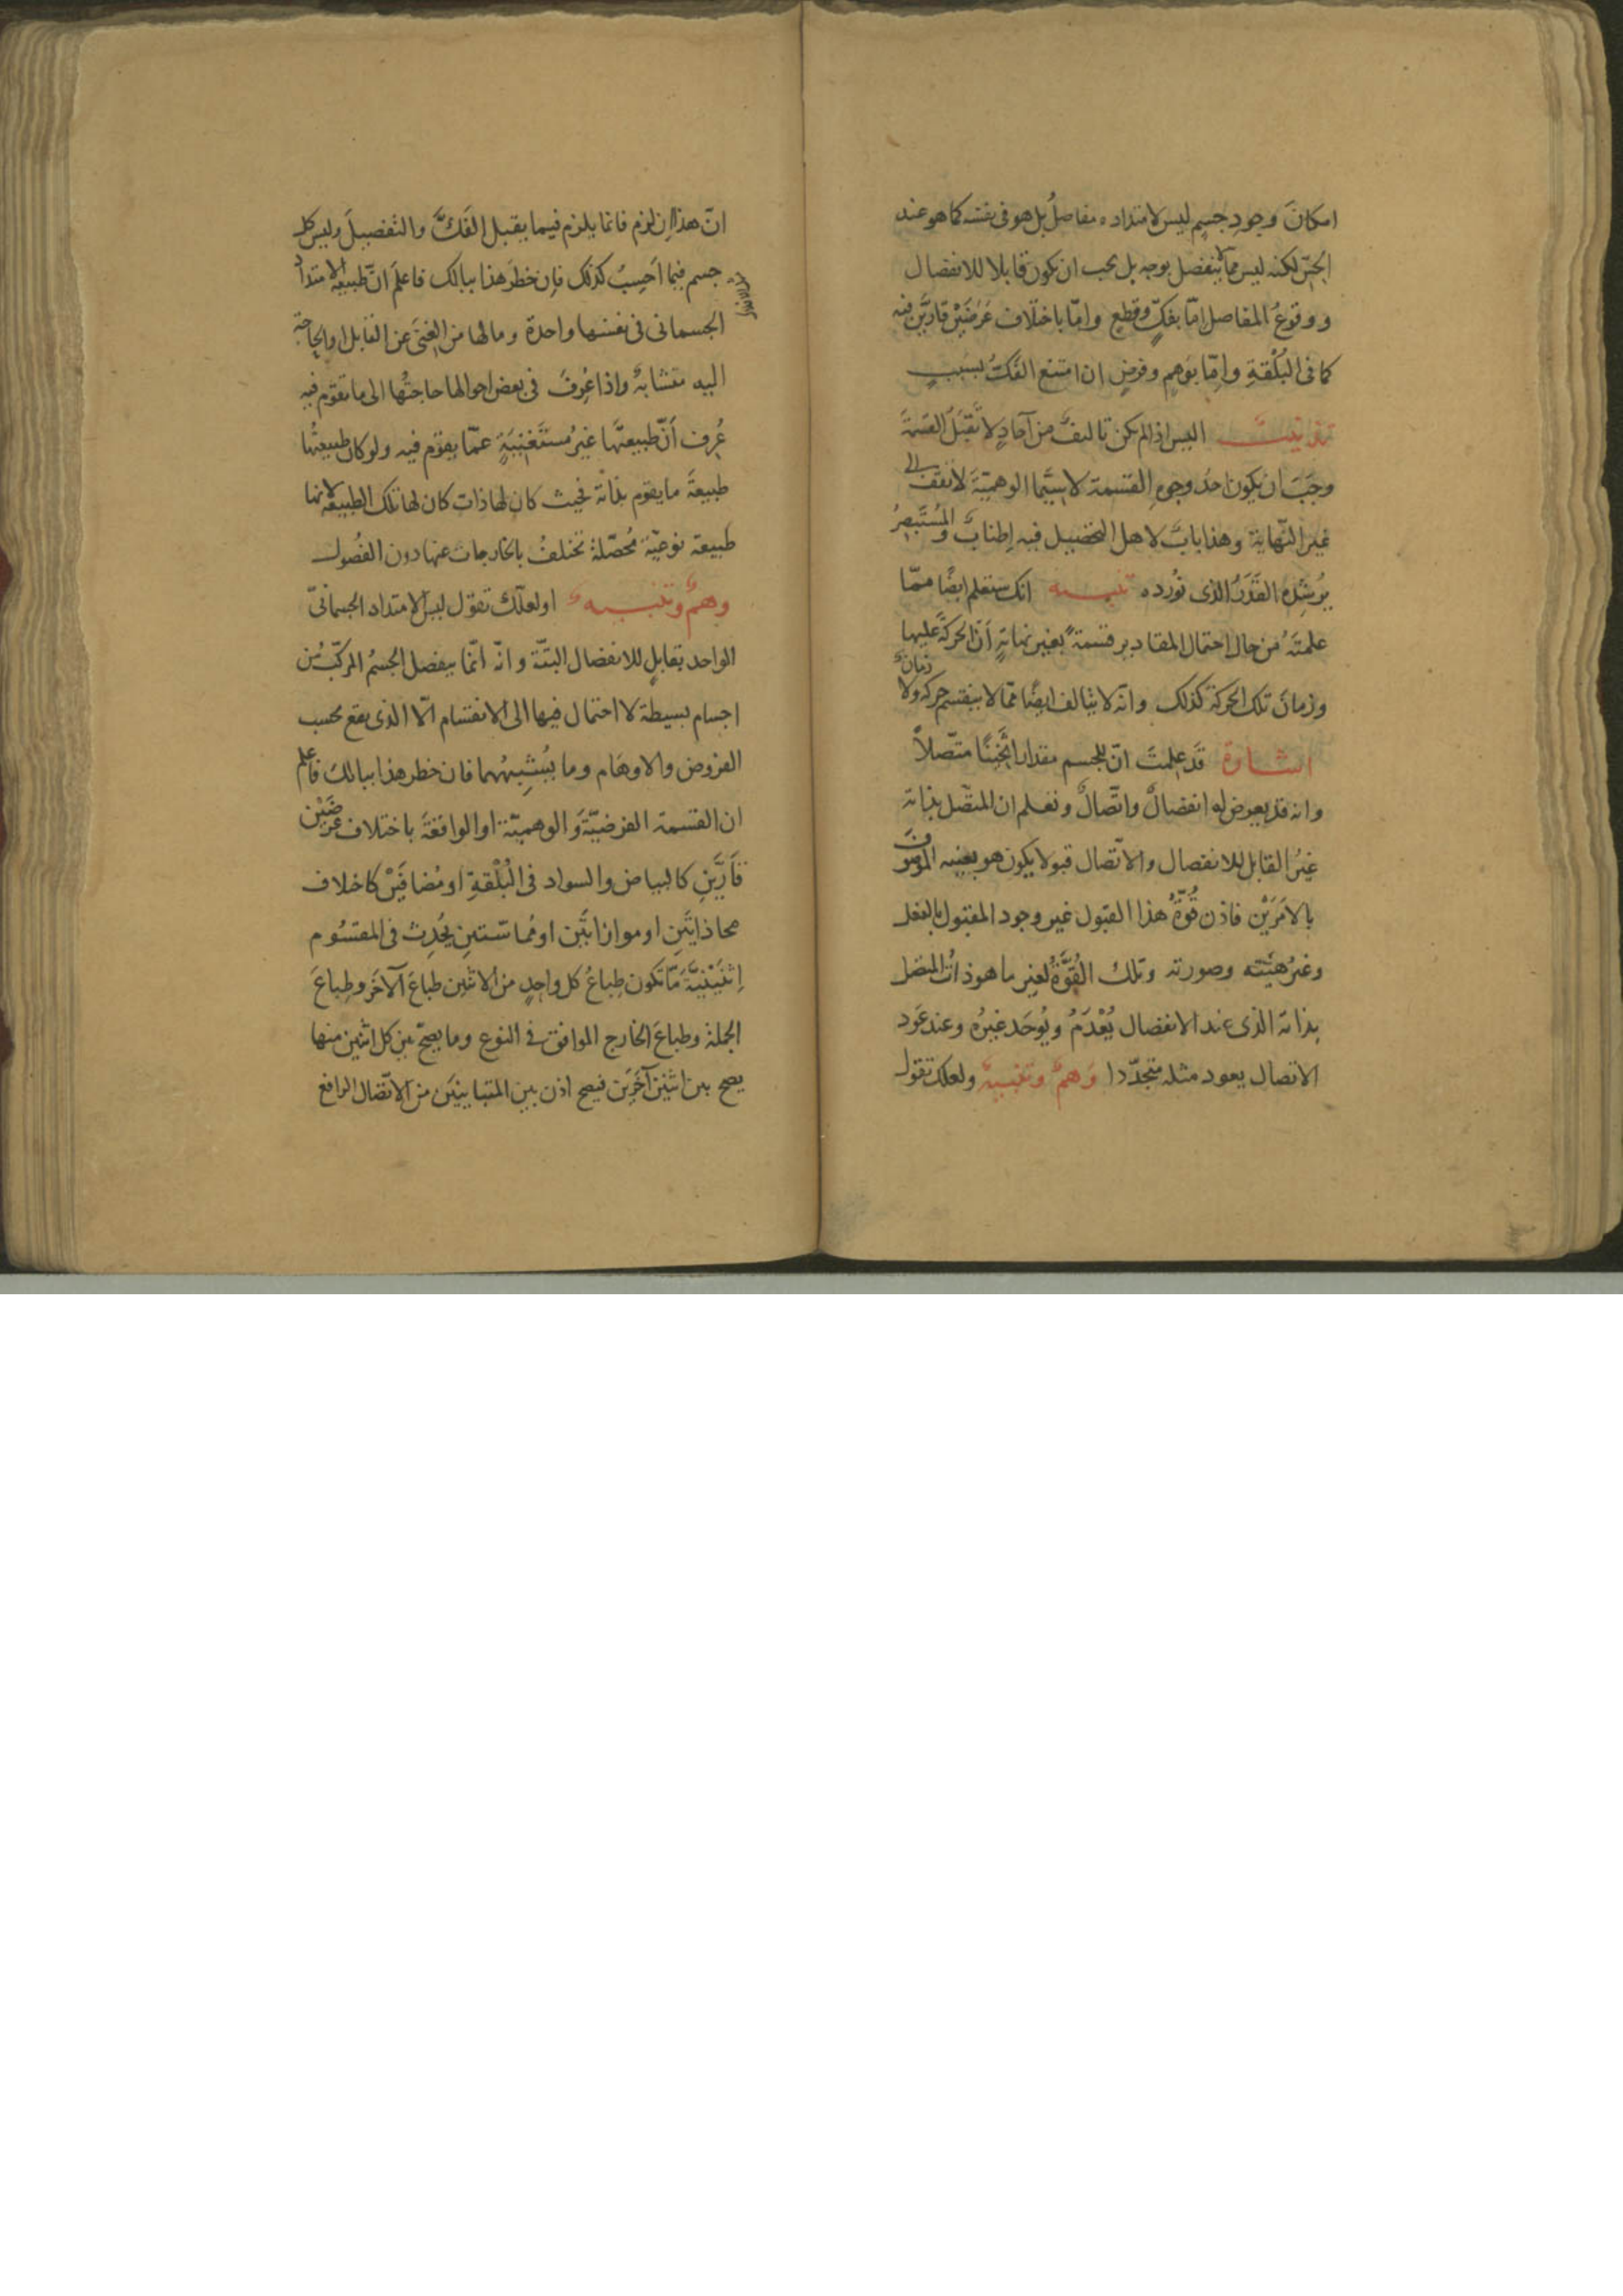 امكانَ وجودِ جسمٍ ليس لامتداده مفاصلُ بل هو فى نفسه كما هو عند
الحِسّ لكنه ليس ممّا لا ينفصل بوجه بل يجب ان يكون قابلا للانفصال
و وقوعُ المفاصل امّا بفكٍّ وقطعٍ وامّا باختلاف عَرَضَيْن قارَّيْن فيه
كما فى البُلْقةِ وامّا بوَهمٍ وفرضٍ ان امتنع الفكُّ لسَببٍ
تذنيبٌ اليس اذا لم يكن تاليفٌ من آحادٍ لا تَقبَلُ القسمةَ
وجَبَ ان يكون احدُ وجوهِ القسمة لا سيَّما الوهميّةَ لا تقف الى
غير النّهاية وهذا بابٌ لاهل التحصيل فيه اِطنابٌ والمُستَبصِرُ
يُرشِدُه القَدَرُ الذى نُورده تنبيه انك ستعلم ايضًا ممّا
علمتَه من حال احتمال المقادير قسمةً بغير نهايةٍ اَنّ الحركةَ عليها
وزمانَ تلك الحركة كذلك وانّه لا يتالف ايضًا ممّا لا ينقسم حركة ولا زمانٌ
اشارة قد علمتَ انّ للجسم مقدارا ثَخِينًا متّصلاً
وانه قد يعرض له انفصالٌ واتّصالٌ وتعلم ان المتّصل بذاته
غيرُ القابل للانفصال والاتّصال قبولا يكون هو بعينه الموصوفَ
بالامَرَيْن فاذن قُوّةُ هذا القبول غير وجود المقبول بالفعل
وغيرُ هيئته وصورته وتلك القُوَّةُ لغير ما هو ذاتُ المتصل
بذاته الذى عند الانفصال يُعْدَمُ ويُوجَد غيرُه وعند عَود
الاتصال يعود مثله متجدّدا وَهمٌ وتنبيهٌ ولعلك تقول
انّ هذا اِن لزم فانما يلزم فيما يقبل الفَكَّ والتفصيلَ وليس كل
جسم فيما اَحسِبُ كذلك فاِن خطَرَ هذا ببالك فاعلَم انّ طبيعة الامتداد
الجسمانى فى نفسها واحدة وما لها من الغِنَى عن القابل او الحاجة
اليه متشابهٌ واذا عُرِفَ فى بعض احوالها حاجتُها الى ما تقوم فيه
عُرِف اَنّ طبيعتَها غيرُ مُستَغنِيَةٍ عمّا يقوم فيه ولو كان طبيعتُها
طبيعةَ ما يقوم بذاته فحيث كان لها ذات كان لها تلك الطبيعة لانها
طبيعة نوعيّة مُحصّلة تختلفُ بالخارجات عنها دون الفُصُول
وهمٌ وتنبيهٌ او لعلّك تقول ليس الامتداد الجسمانىّ
الواحد بقابلٍ للانفصال البتّة وانّه انّما ينفصل الجسمُ المركّبُ من
اجسام بسيطة لا احتمال فيها الى الانقسام الّا الذى يقع بحسب
الفروض والاوهام وما يُشبِهُهما فان خطر هذا ببالك فاعلم
ان القسمة الفرضيّةَ والوهميّة او الواقعةَ باختلاف عَرَضَيْن
قارَّينِ كالبياض والسواد فى البُلْقةِ او مُضافَيْن كاختلاف
محاذاتَينِ او موازاتَين او مُماسّتينِ يُحدِث فى المقسُوم
اِثنَيْنِيَّةً مّا تكون طِباعُ كل واحدٍ من الاثنين طباعَ الآخَر وطِباعَ
الجملة وطباعَ الخارج الموافق فى النوع وما يصحّ بين كل اثنين منها
يصح بين اثنين آخَرَين فيصح اذن بين المتباينَين من الاتّصال الرافع